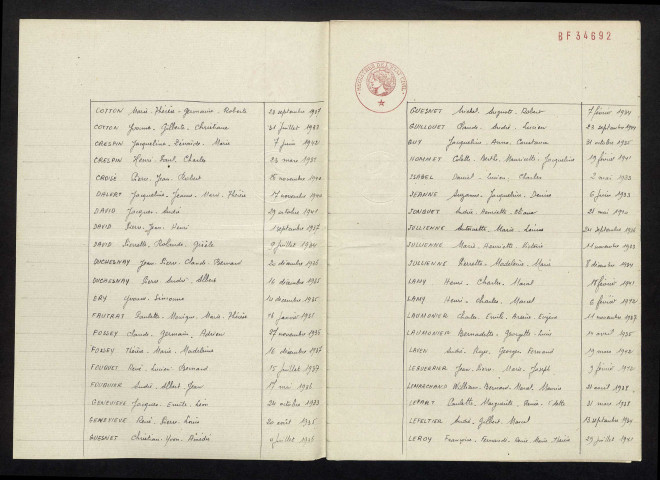 BF34692
COTTON Marie-Thérèse-Germaine-Roberte 23 septembre 1937
COTTON Jeanne-Gilberte-Christiane 31 juillet 1933
CRESPIN Jacqueline Marie 7 juin
CRESPIN Henri-Paul-Charles 23 mars 1931
CROISÉ Pierre-Jean-Robert 15 novembre
DALERY Jacqueline-Jeanne-Marie-Thérèse 17 novembre
DAVID Jacques-André 29 octobre 1941
DAVID Pierre-Jean-Henri 1 septembre 1937
DAVID Pierrette-Rolande-Gisèle 9 juillet 1934
DUCHESNAY Jean-Pierre-Claude-Bernard 20 décembre 1936
DUCHESNAY Pierre-André-Albert 16 décembre 1935
ERY Yvonne-Simonne 10 décembre 1935
FAUTRAT Paulette-Monique-Marie-Thérèse 18 janvier 1935
FORLEY Claude-Germain-Adrien 27 novembre 1935
FORLEY Thérèse-Marie-Madeleine 16 décembre 1937
FOUQUET René-Lucien-Bernard 15 juillet 1937
FOURNIER André-Albert-Jean 1er mai 1936
GENEVIEVE Jacques-Emile-Léon 24 octobre 1933
GENEVIEVE René-Pierre-Louis 20 août 1935
GUESNET Christian-Yvon-Désiré juillet
GUESNET Michel-Auguste-Robert 7 février 1934
GUILLOUET Claude-André-Lucien 23 septembre
GUY Jacqueline-Anne-Constance 31 octobre 1935
HOMMET Colette-Berthe-Henriette-Jacqueline 19 février 1941
ISABEL Daniel-Lucien-Charles 2 mai 1933
JEANNE Suzanne-Jacqueline-Denise 6 février 1933
JONQUET André 21 mai
JULIENNE Antoinette-Marie-Louise 24 septembre 1936
JULIENNE Marie-Henriette 11 novembre 1933
JULIENNE Pierrette-Madeleine-Marie 8 décembre 1934
LAMY Henri-Charles-Marcel 18 février 1941
LAMY Henri-Charles-Marcel 6 février
LAUMONIER Charles-Emile-Eugène 11 novembre 1937
LAUMONIER Bernadette-Georgette-Louise 11 avril 1935
LAYEN André-Roger-Georges-Fernand 19 mars
LEBOURNA Jean-Pierre-Marie-Joseph 3 février
LEMARCHAND William-Bernard-Marcel-Maurice 21 août 1938
LEPART Paulette-Marguerite 31 mars 1938
LEPELTIER André-Gilbert-Marcel 13 septembre 1934
LEROY Françoise-Fernande Marie-Thérèse 29 juillet 1941